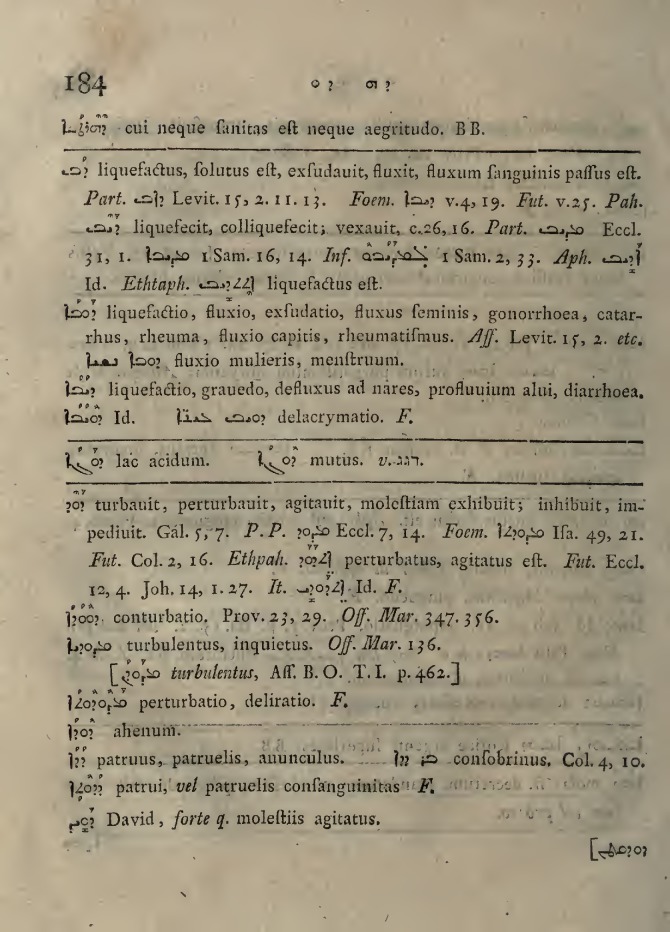 184 ܕܗ ܕܘ
cui neque ſanitas eſt neque aegritudo. BB.
ܕܒ liquefactus, ſolutus eſt, exſudauit, fluxit, fluxum ſanguinis paſſus eſt.
Part. ܕܐܒ Levit. 15, 2. 11. 13. Foem. v. 4, 19. Fut. v. 25. Pah.
ܕܝܒ liquefecit, colliquefecit; vexauit, c. 26, 16. Part. ܡܕܝܒ Eccl.
31, 1. ܡܕܝܒܐ 1 Sam. 16, 14. Inf. ܠܡܕܝܒܘ 1 Sam. 2, 33. Aph. ܐܕܝܒ
Id. Ethtaph. ܐܬܬܕܝܒ liquefactus eſt.
ܕܘܒܐ liquefactio, fluxio, exſudatio, fluxus feminis, gonorrhoea, catar-
rhus, rheuma, fluxio capitis, rheumatiſmus. Aſſ. Levit. 15, 2. etc.
ܕܘܒܐ ܢܫܝܐ fluxio mulieris, menſtruum.
ܕܝܒܐ liquefactio, grauedo, defluxus ad nares, profluuium alui, diarrhoea.
ܕܘܝܒܐ Id. ܕܘܝܒ ܥܝܢܐ delacrymatio. F.
ܕܘܓܐ lac acidum. ܕܘܓܐ mutus. v. דגג.
ܕܘܕ turbauit, perturbauit, agitauit, moleſtiam exhibuit; inhibuit, im-
pediuit. Gal. 5, 7. P. P. ܡܕܘܕ Eccl. 7, 14. Foem. ܡܕܘܕܬܐ Iſa. 49, 21.
Fut. Col. 2, 16. Ethpah. ܐܬܕܘܕ perturbatus, agitatus eſt. Fut. Eccl.
12, 4. Joh. 14, 1. 27. It. ܐܬܕܘܕܝ Id. F.
ܕܘܘܕܐ conturbatio. Prov. 23, 29. Off. Mar. 347. 356.
ܡܕܘܕܝܐ turbulentus, inquietus. Off. Mar. 136.
[ܡܕܘܕܢ turbulentus, Aſſ. B. O. T. I. p. 462.]
ܡܕܘܕܘܬܐ perturbatio, deliratio. F.
ܕܘܕܐ ahenum.
ܕܕܐ patruus, patruelis, anunculus. ܒܪ ܕܕܐ conſobrinus. Col. 4, 10.
ܕܕܘܬܐ patrui, vel patruelis conſanguinitas F.
ܕܘܝܕ David, forte q. moleſtiis agitatus.